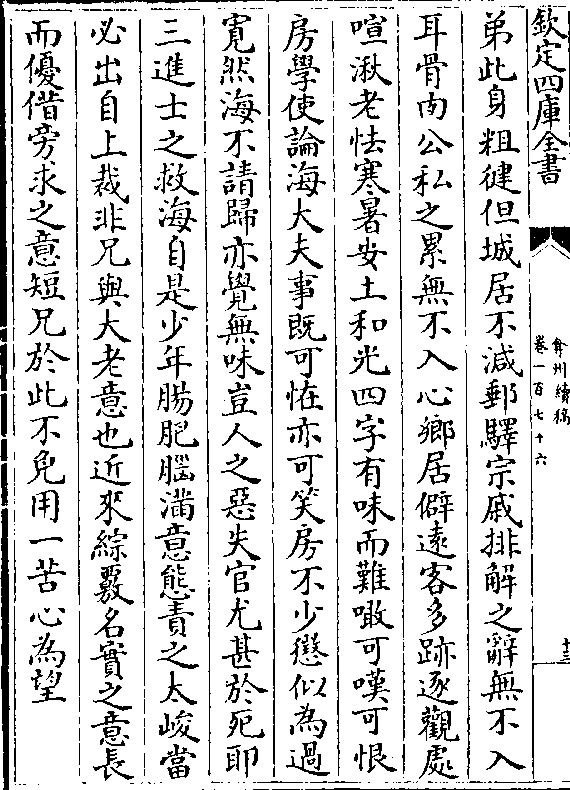 欽定四庫全書
弇州續稿
卷一百七十六
十三
弟此身粗健但城居不減郵驛宗戚排解之辭無不入
耳骨肉公私之累無不入心鄉居僻遠客多跡逐觀處
喧湫老怯寒暑安土和光四字有味而難噉可嘆可恨
房學使論海大夫事既可恠亦可笑房不少懲似為過
寛然海不請歸亦覺無味豈人之惡失官尤甚於死耶
三進士之救海自是少年腸肥腦滿意態責之太峻當
必出自上裁非兄與大老意也近來綜覈名實之意長
而優借旁求之意短兄於此不免用一苦心為望